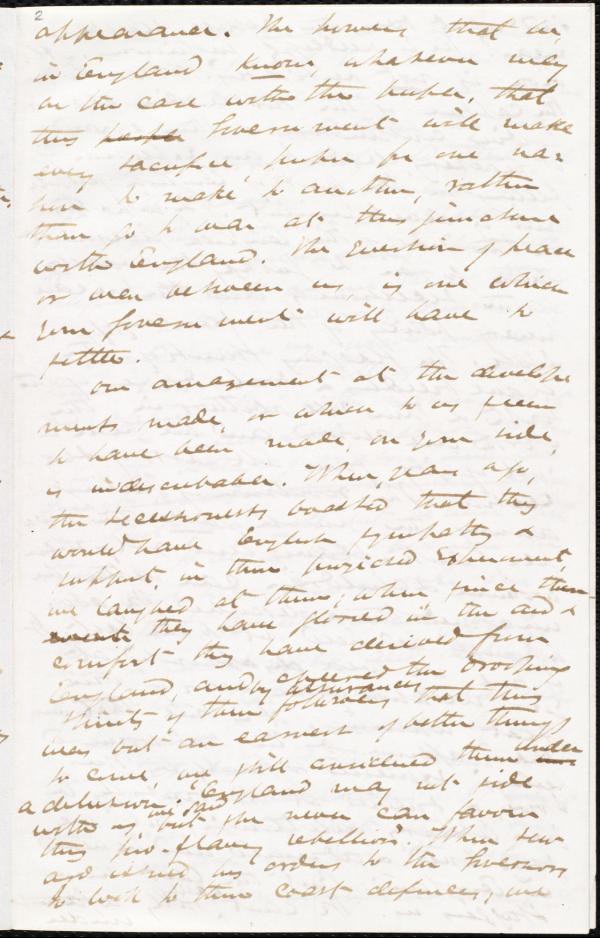 2
appearance. The powers that be,
in England know, whatever may
be the case with the people, that
this people Government will make
every sacrifice, proper for one na-
tion to make to another, rather
than go to war at this juncture
with England. The question of peace
or war between us is one which
your Government will have to
settle.
Our amazement at the develope
ments made, or which to us seem
to have been made, on your side,
is indescribable. When, years ago,
the secessionists boasted that they
would have English sympathy &
support, in their projected experiment,
we laughed at them; when since then
they have gloried in the aid &
comfort they have derived from
England, and by assurances cheered the drooping
spirits of their followers that this
was but an earnest of better things
to come, we still considered them under
a delusion. "England may not side
with us" we said "but she never can favour
this pro-slavery rebellion". When
ago issued his orders to the Governors
to look to their coast defences, we